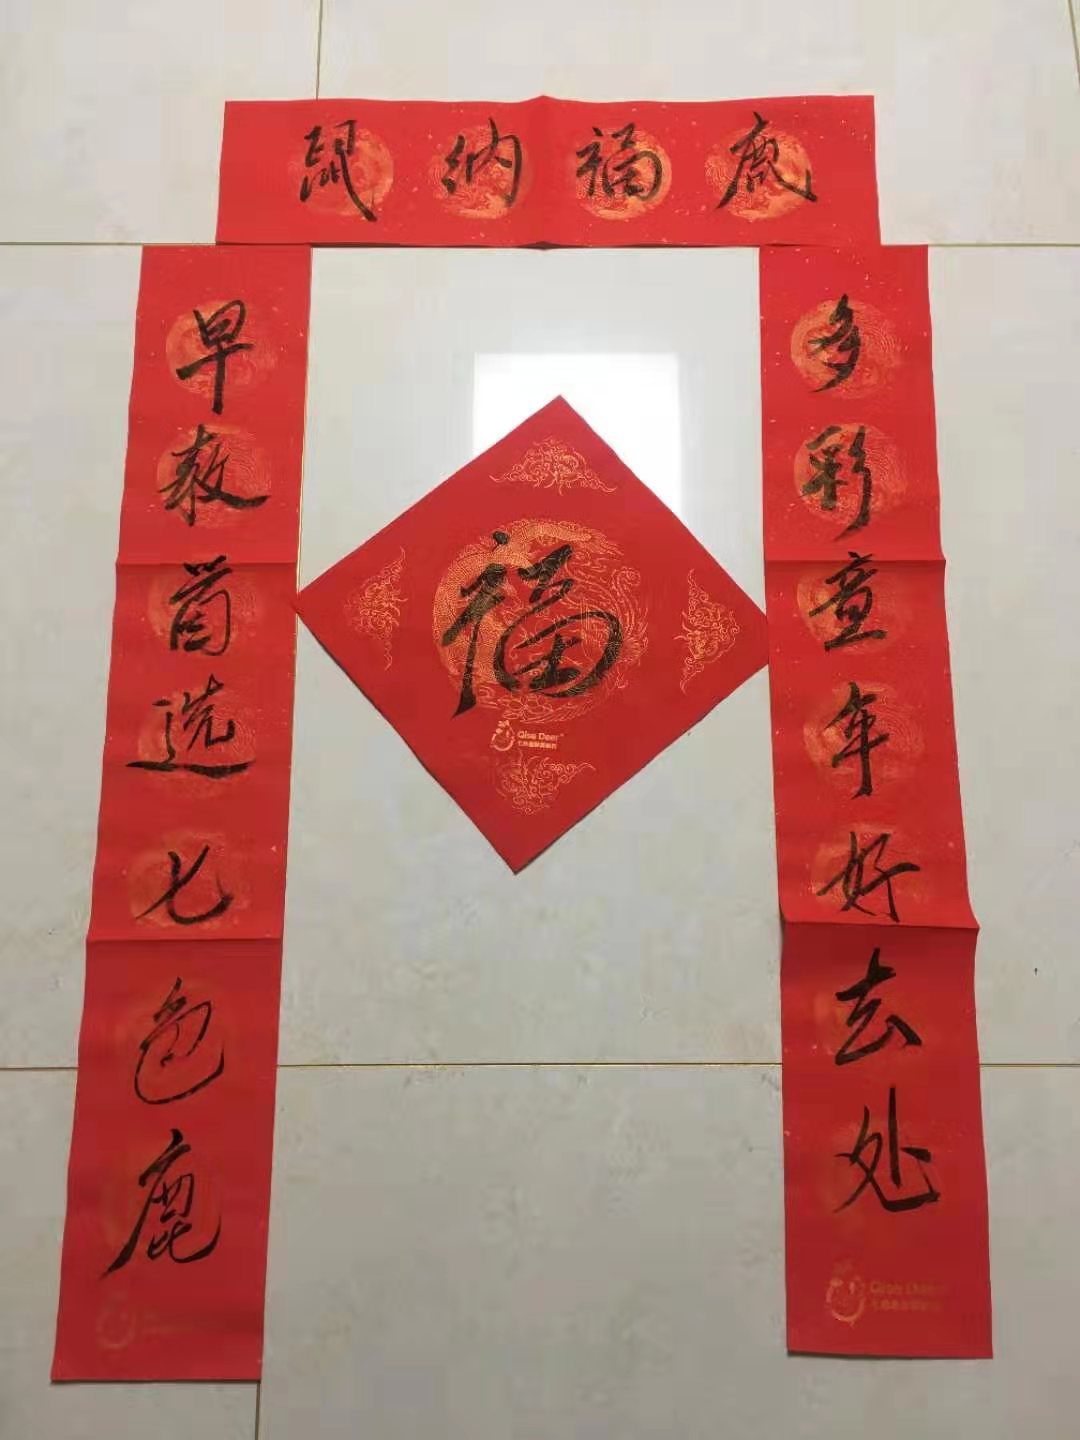 鼠纳福鹿
早教首选七色鹿
多彩童年好去处
福
Qise Deer